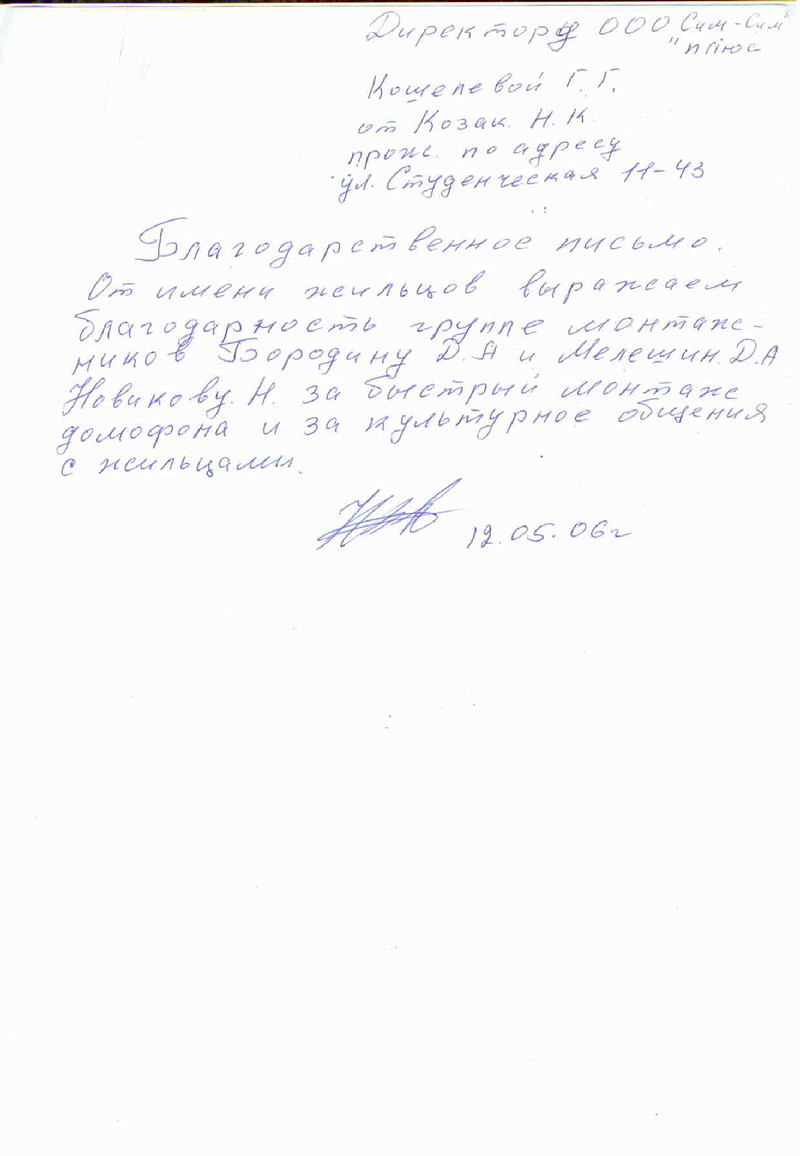 Директору ООО Сим-Сим"
"плюс
Кошелевой Г. Г.
от Козак. Н. К.
прож. по адресу
ул. Студенческая 11-43
Благодарственное письмо.
От имени жильцов выражаем
благодарность группе монтаж-
ников Бородину Д.А и Мелешин.Д.А
Новикову. Н. за быстрый монтаж
домофона и за культурное общения
с жильцами.
12.05.06г